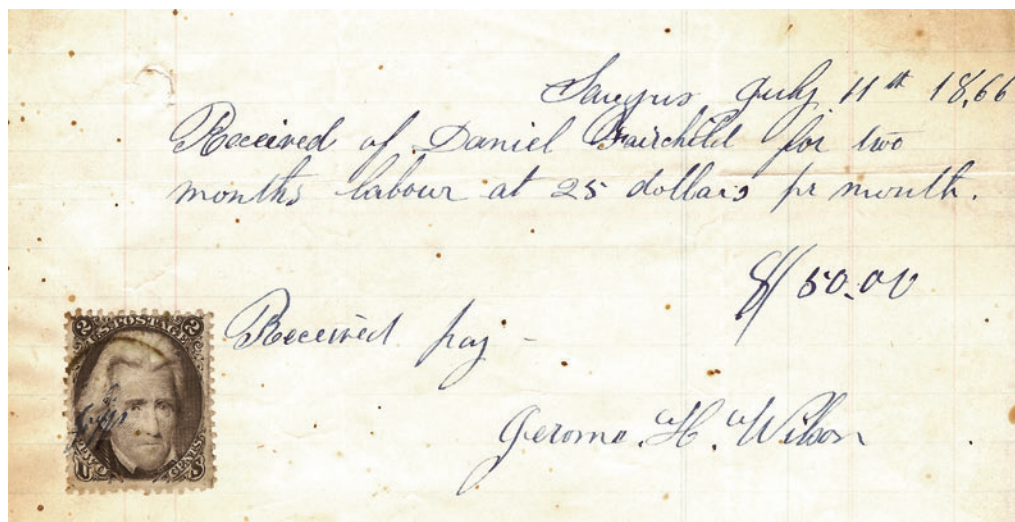 Saugus, July 11th 1866
Received of Daniel Fairchild for two
months labour at 25 dollars pr month.
$50.00
Received pay -
Jerome. H. Wilson
2 U.S. POSTAGE 2
U TWO CENTS S